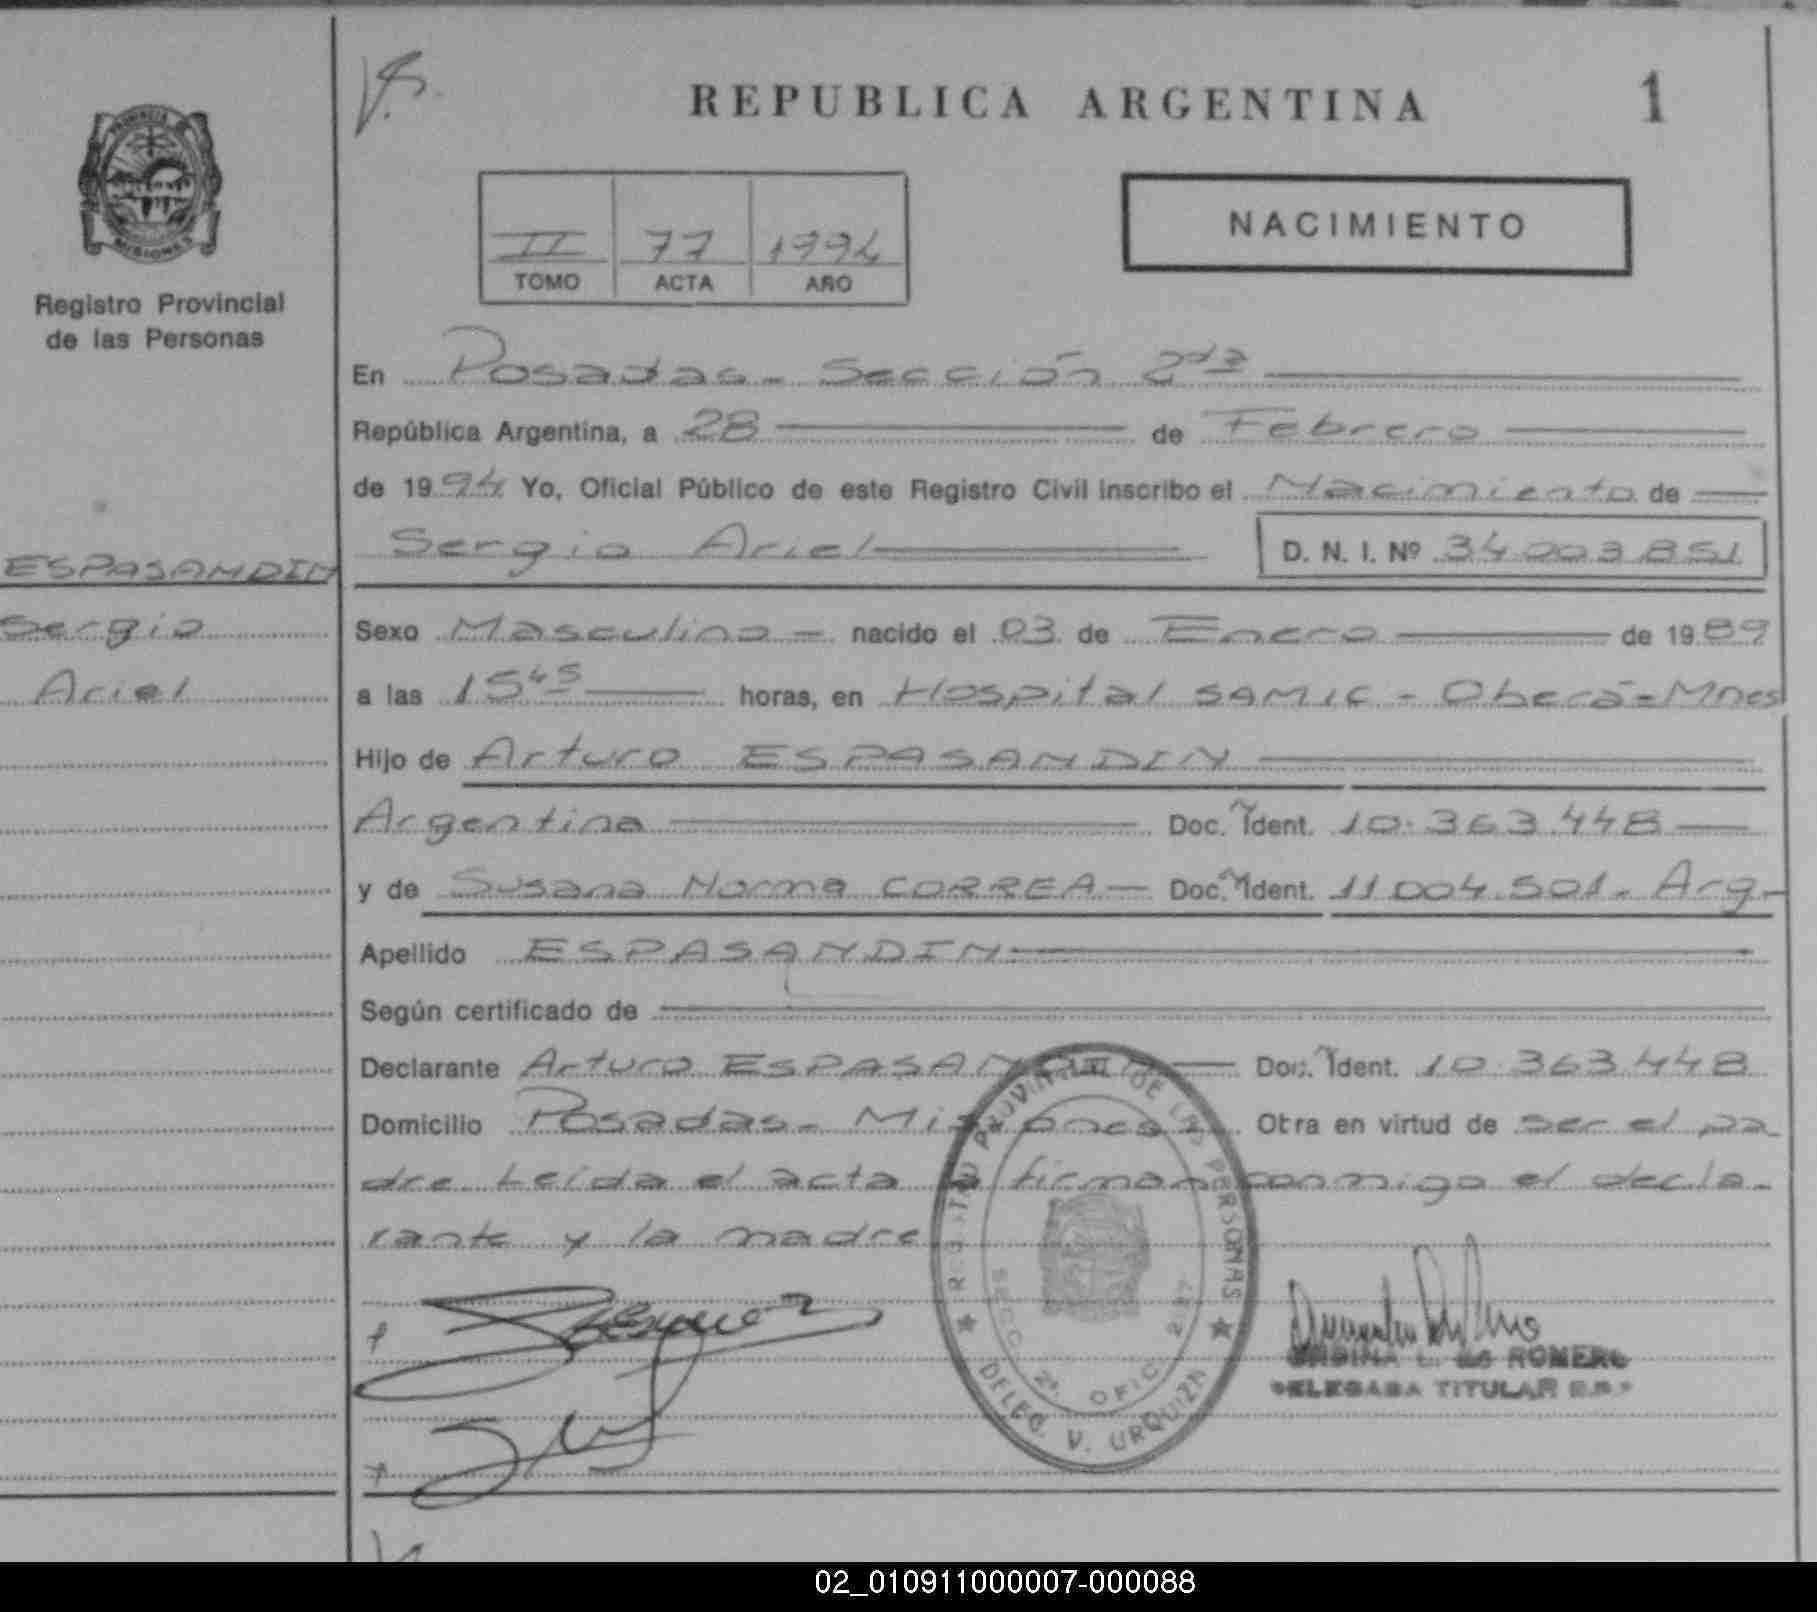 REPUBLICA ARGENTINA
1
PROVINCIA DE
MISIONES
Registro Provincial
de las Personas
II 77 1994
TOMO ACTA AÑO
NACIMIENTO
En Posadas - Sección 2da
República Argentina, a 28 de Febrero
de 1994 Yo, Oficial Público de este Registro Civil inscribo el Nacimiento de
Sergio Ariel D. N. I. Nº 34.003.851
ESPASANDIN
Sergio
Ariel
Sexo Masculino - nacido el 03 de Enero de 1989
a las 15 45 horas, en Hospital SAMIC - Oberá - Mnes
Hijo de Arturo ESPASANDIN
Argentina Doc. Ident. 10.363.448
y de Susana Norma CORREA - Doc. Ident. 11.004.501. Arg.
Apellido ESPASANDIN
Según certificado de
Declarante Arturo ESPASANDIN Doc. Ident. 10.363.448
Domicilio Posadas - Misiones Otra en virtud de ser el pa
dre. Leída el acta firman conmigo el decla-
rante y la madre
REGISTRO PROVINCIAL DE LAS PERSONAS
SECC. 2ª OFIC. 287
DELEG. V. URQUIZA
L. de ROMERO
DELEGADA TITULAR
02_010911000007-000088